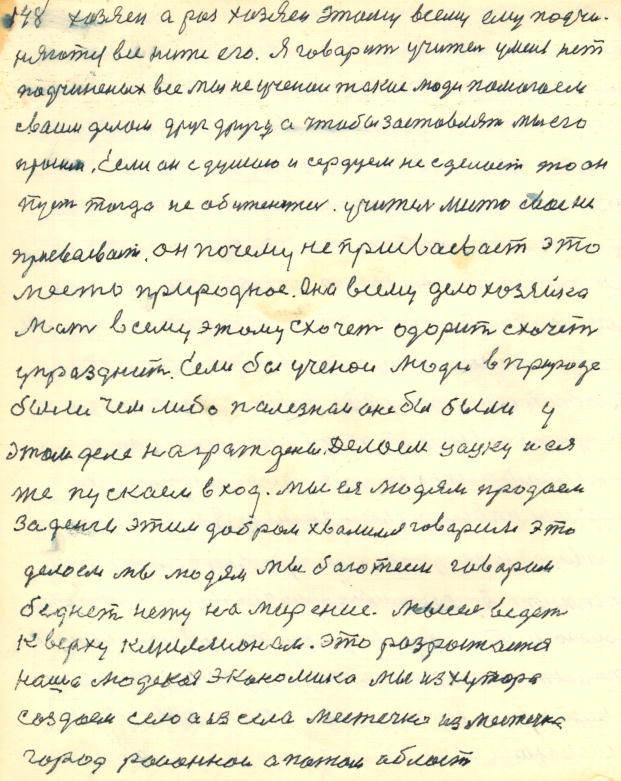 148 хозяен а раз хозяен этому всему ему подчи-
няются все ниже его. Я говарит учител у меня нет
подчиненых все мы не ученои такие люди помогаем
сваим делом друг другу а чтобы заставлят мы его
просим. Если он с душою и сердцем не сделает то он
пуст тогда не обижается. учител место свое не
присваеваит. он почему не присваевает это
место природное. Она всему дело хозяйка
Мат всему этому схочет одорит схочет
упразднит. Если бы ученои люди в природе
были чем либо палезнаи оне бы были у
этом деле награждены. Делоем науку и ея
же пускаем в ход. мы ея людям продаем
За денги этим добром хвалимся говарим это
делоем мы людям мы богатеим говарим
беднет нету на мирение. мысля ведет
к верху к милионам. Это разростается
наша людская Экономика мы из хутора
создаем село а из села местечко из местечка
город районнои а потом област